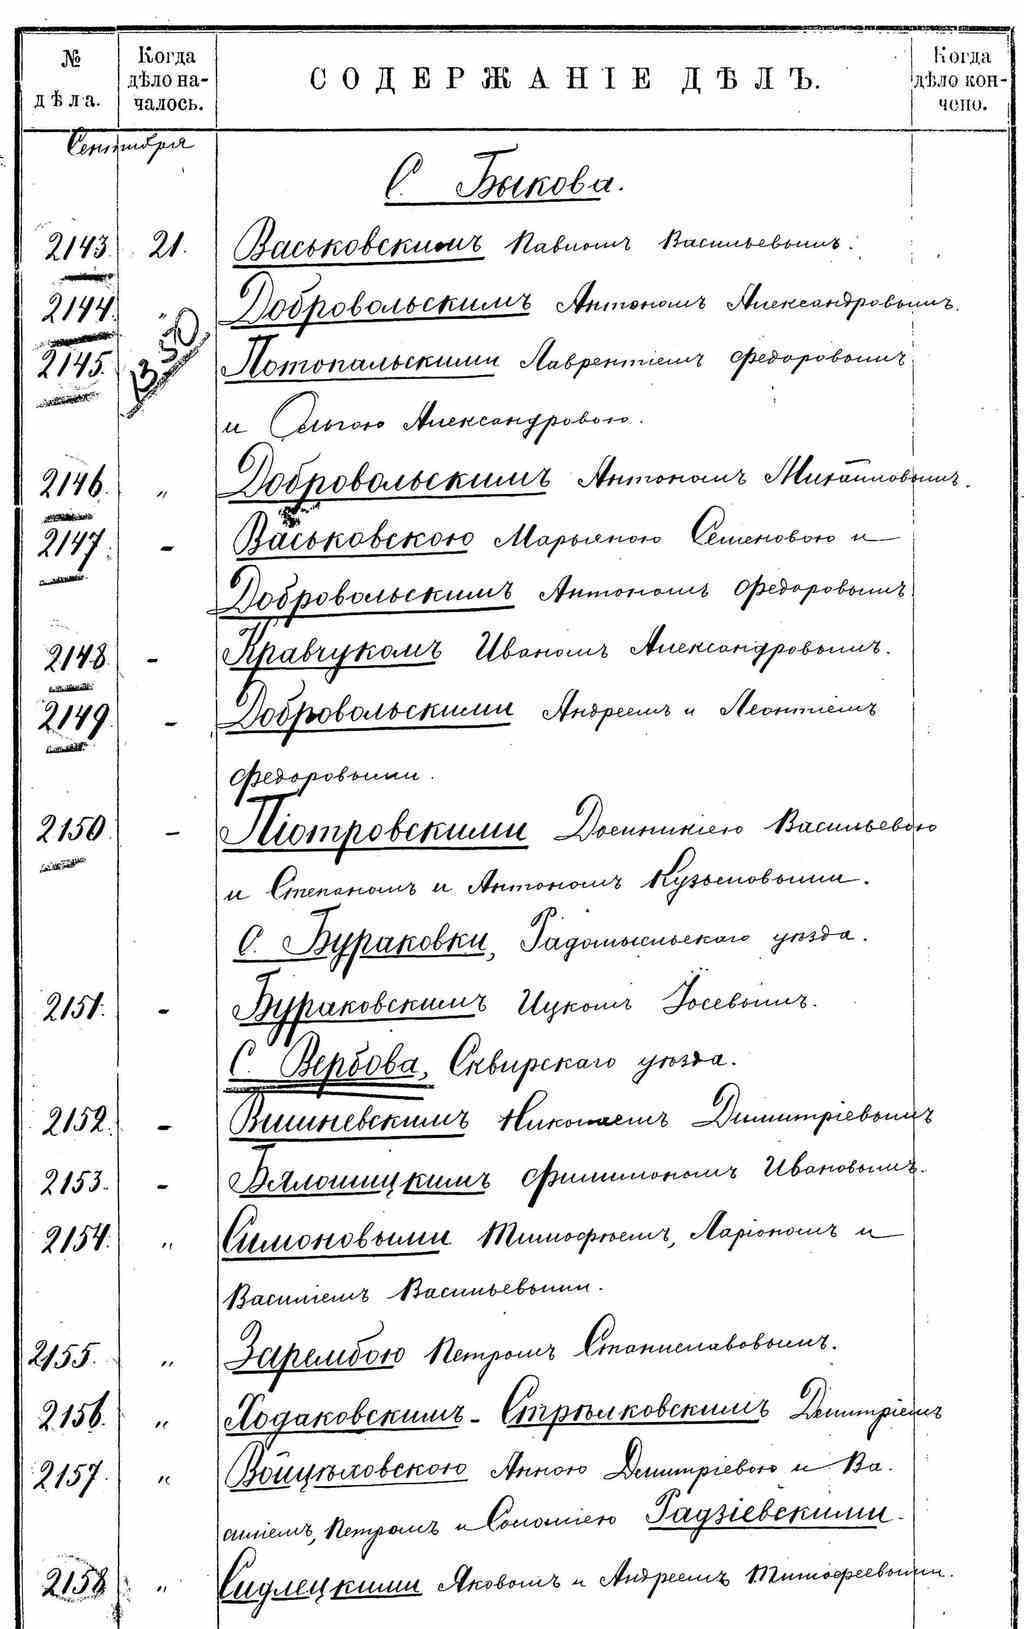 № дѣла.
Когда дѣло началось.
СОДЕРЖАНІЕ ДѢЛЪ.
Когда дѣло кончено.
Сентября
С. Быкова.
2143. 21. Васьковскимъ Павломъ Васильевымъ.
2144. „ Добровольскимъ Антономъ Александровымъ.
1350
2145. Потопальскими Лаврентіемъ Федоровымъ
и Ольгою Александровою.
2146. „ Добровольскимъ Антономъ Михайловымъ.
2147. - Васьковскою Марьяною Семеновою и
Добровольскимъ Антономъ Федоровымъ
2148. - Кравчукомъ Иваномъ Александровымъ.
2149. - Добровольскими Андреемъ и Леонтіемъ
Федоровыми.
2150. - Піотровскими Доминикіею Васильевою
и Степаномъ и Антономъ Кузьмовыми.
С. Бураковки, Радомысльскаго уѣзда.
2151. - Бураковскимъ Ицкомъ Іосевымъ.
С. Вербова, Сквирскаго уѣзда.
2152. - Вишневскимъ Николаемъ Димитріевымъ
2153. - Бялошицкимъ Филимономъ Ивановымъ.
2154. „ Симоновыми Тимофѣемъ, Ларіономъ и
Василіемъ Васильевыми.
2155. „ Зарембою Петромъ Станиславовымъ.
2156. „ Ходаковскимъ-Стрѣлковскимъ Димитріемъ
2157. „ Войцѣховскою Анною Димитріевою и Ва-
силіемъ, Петромъ и Соломіею Радзіевскими.
2158 „ Сидлецкими Яковомъ и Андреемъ Тимофеевыми.